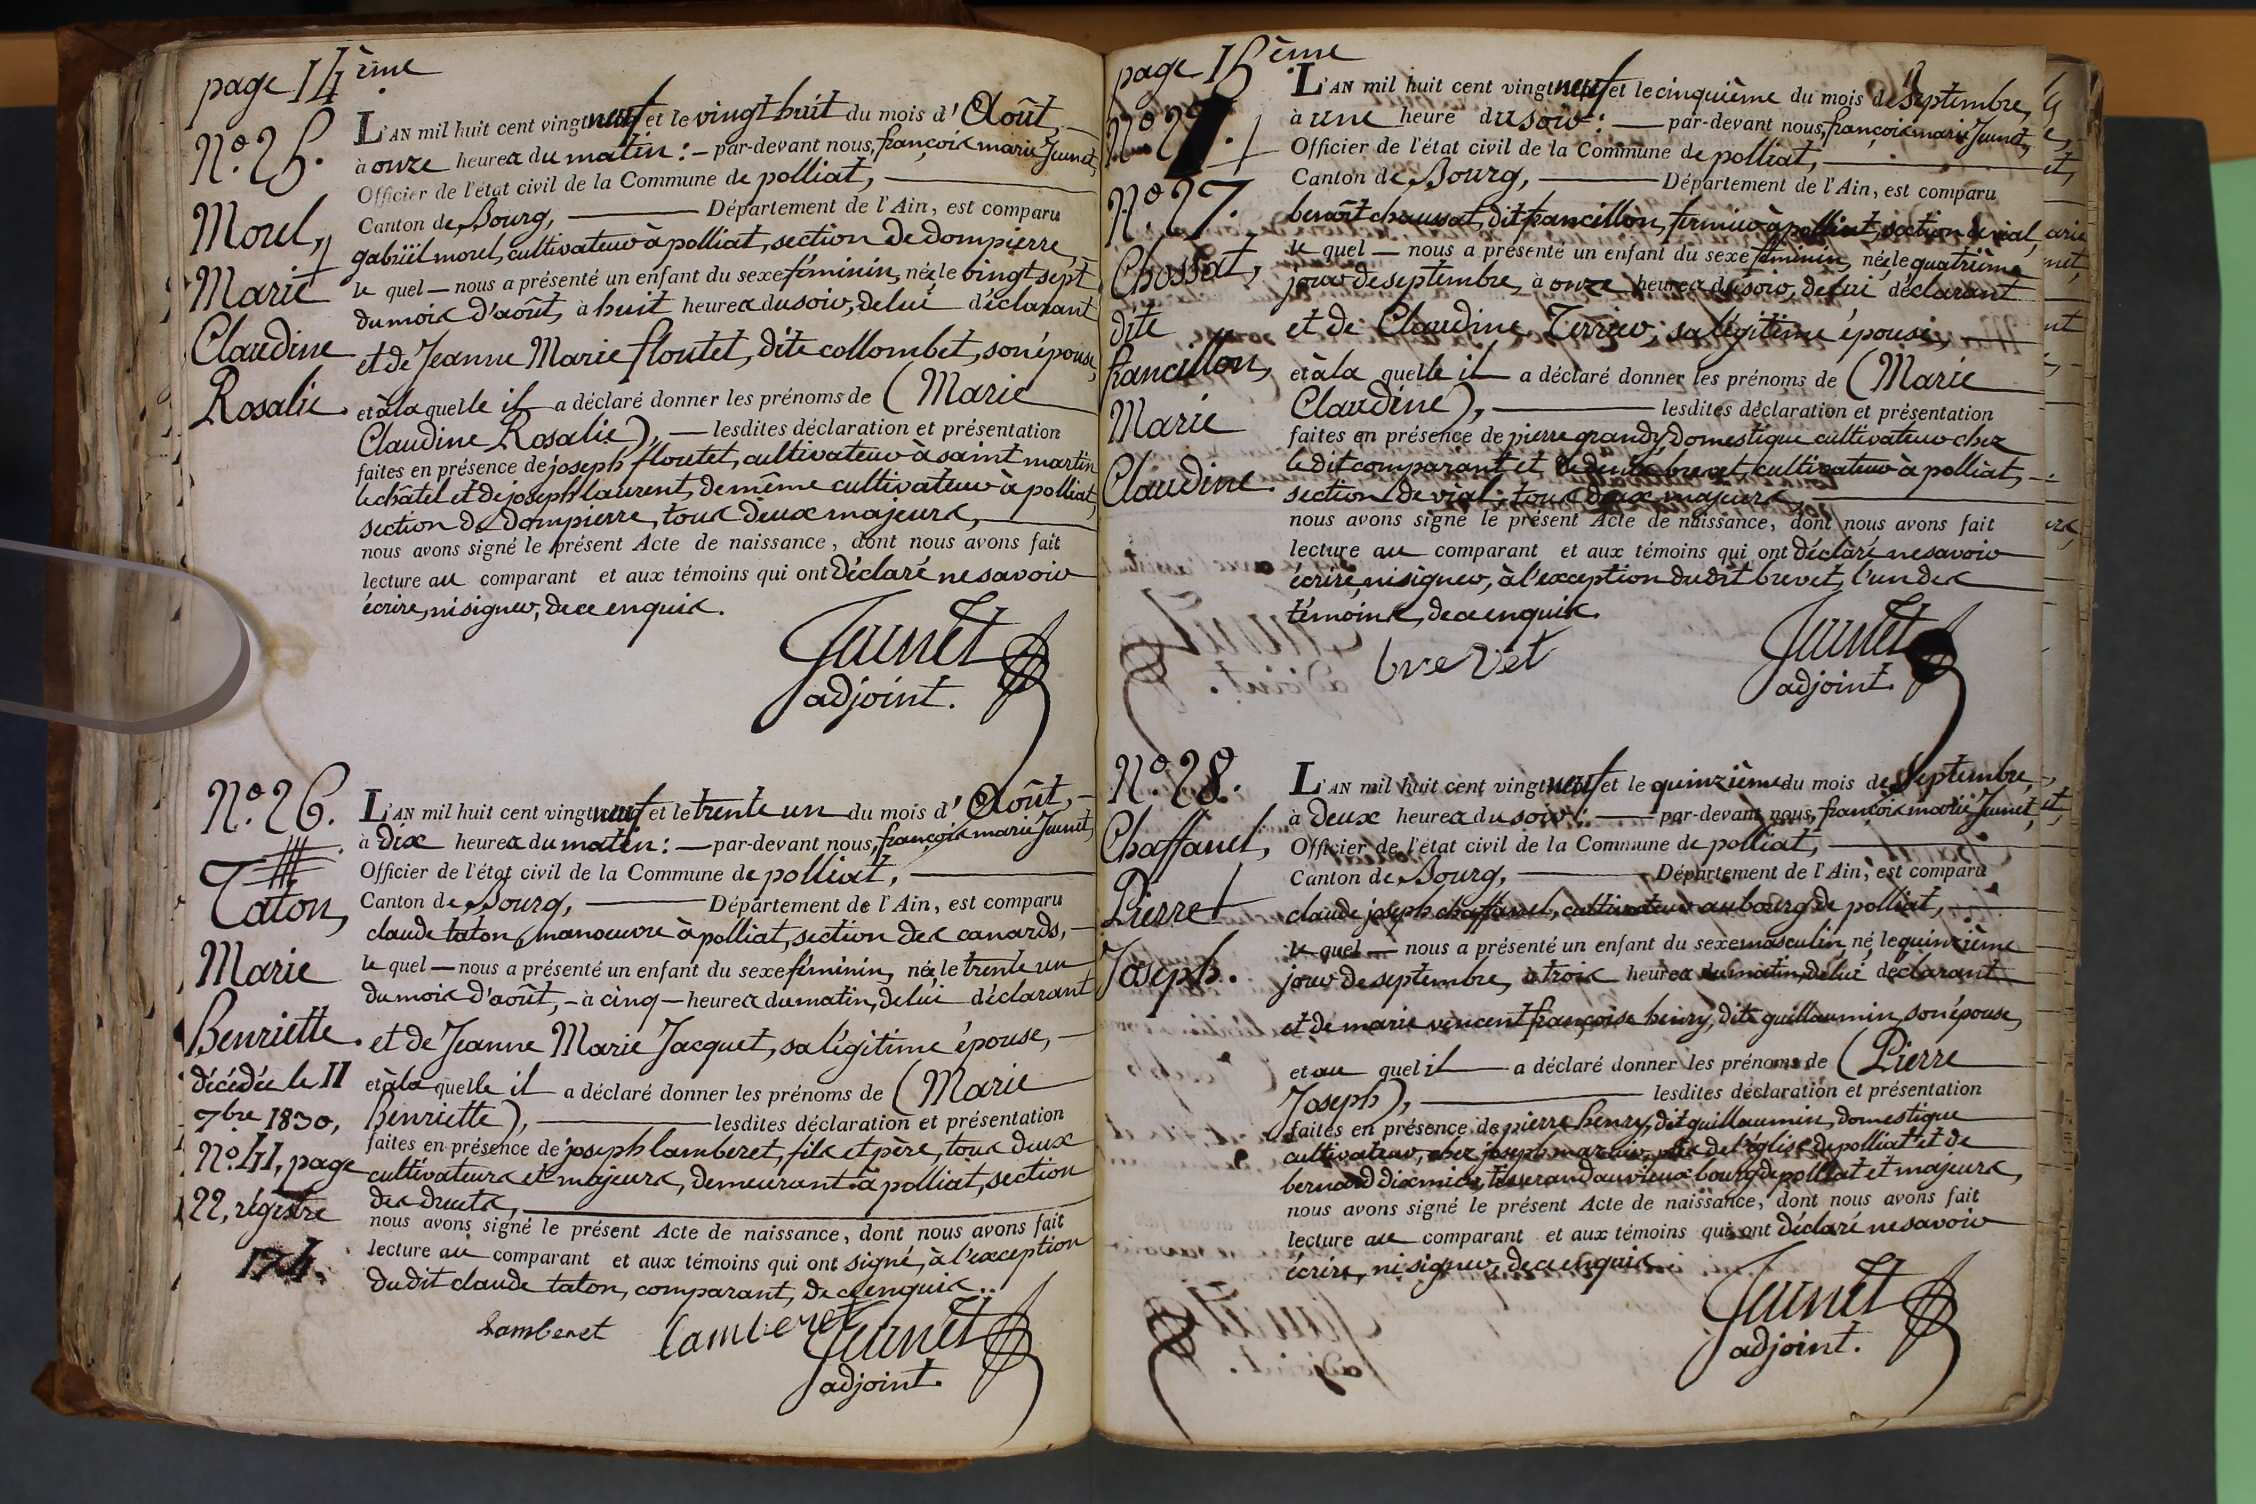 page 14 ème
N.º 25.
Morel,
Marie
Claudine
Rosalie.
L'AN mil huit cent vingt neuf et le vingt huit du mois d'Août,
à onze heures du matin: — par-devant nous, françois marie Jeunet,
Officier de l'état civil de la Commune de polliat,
Canton de Bourg, — Département de l'Ain, est comparu
gabriël morel, cultivateur à polliat, section de dompierre,
le quel — nous a présenté un enfant du sexe féminin, née le vingt sept
du mois d'août, à huit heures du soir, de lui déclarant
et de Jeanne Marie floutet, dite collombet, son épouse,
et à la quelle il a déclaré donner les prénoms de (Marie
Claudine Rosalie), — lesdites déclaration et présentation
faites en présence de joseph floutet, cultivateur à saint martin
le châtel et de joseph laurent, de même cultivateur à polliat,
section de dompierre, tous deux majeurs,
nous avons signé le présent Acte de naissance, dont nous avons fait
lecture au comparant et aux témoins qui ont déclaré ne savoir
écrire, ni signer, de ce enquis.
Jeunet
adjoint.
N.º 26.
Taton,
Marie
Henriette.
décédée le 11
7bre 1830,
N.º 41, page
22, régistre
174.
L'AN mil huit cent vingt neuf et le trente un du mois d'Août,
à dix heures du matin: — par-devant nous, françois marie Jeunet,
Officier de l'état civil de la Commune de polliat,
Canton de Bourg, — Département de l'Ain, est comparu
claude taton, manoeuvre à polliat, section des canards,
le quel — nous a présenté un enfant du sexe féminin, née le trente un
du mois d'août, — à cinq — heures du matin, de lui déclarant
et de Jeanne Marie Jacquet, sa légitime épouse,
et à la quelle il a déclaré donner les prénoms de (Marie
Henriette), — lesdites déclaration et présentation
faites en présence de joseph lamberet, fils et père, tous deux
cultivateurs et majeurs, demeurant à polliat, section
des druets,
nous avons signé le présent Acte de naissance, dont nous avons fait
lecture au comparant et aux témoins qui ont signé, à l'exception
du dit claude taton, comparant, de ce enquis..
Lamberet lamberet Jeunet
adjoint.
page 15 ème
N.º 27.
N.º 27.
Chossat,
dite
francillon,
Marie
Claudine.
L'AN mil huit cent vingt neuf et le cinquième du mois de septembre,
à une heure du soir: — par-devant nous, françois marie Jeunet,
Officier de l'état civil de la Commune de polliat,
Canton de Bourg, — Département de l'Ain, est comparu
benoît chaussat, dit francillon, fermier à polliat, section de vial,
le quel — nous a présenté un enfant du sexe féminin, née le quatrième
jour de septembre, à onze heures du soir, de lui déclarant
et de Claudine Terrier, sa légitime épouse,
et à la quelle il a déclaré donner les prénoms de (Marie
Claudine), — lesdites déclaration et présentation
faites en présence de pierre grandy, domestique cultivateur chez
le dit comparant et de denis brevet, cultivateur à polliat,
section de vial, tous deux majeurs,
nous avons signé le présent Acte de naissance, dont nous avons fait
lecture au comparant et aux témoins qui ont déclaré ne savoir
écrire, ni signer, à l'exception du dit brevet, l'un des
témoins, de ce enquis.
brevet Jeunet
adjoint.
N.º 28.
Chaffanel,
Pierre
Joseph.
L'AN mil huit cent vingt neuf et le quinzième du mois de septembre,
à deux heures du soir: — par-devant nous, françois marie Jeunet,
Officier de l'état civil de la Commune de polliat,
Canton de Bourg, — Département de l'Ain, est comparu
claude joseph chaffanel, cultivateur au bourg de polliat,
le quel — nous a présenté un enfant du sexe masculin, né le quinzième
jour de septembre, à trois heures du matin, de lui déclarant
et de marie vincent françoise henry, dite guillaumin, son épouse,
et au quel il a déclaré donner les prénoms de (Pierre
Joseph), — lesdites déclaration et présentation
faites en présence de pierre henry, dit guillaumin, domestique
cultivateur, chez joseph de l'église de polliat et de
bernard tisserand au vieux bourg de polliat et majeurs,
nous avons signé le présent Acte de naissance, dont nous avons fait
lecture au comparant et aux témoins qui ont déclaré ne savoir
écrire, ni signer, de ce enquis.
Jeunet
adjoint.